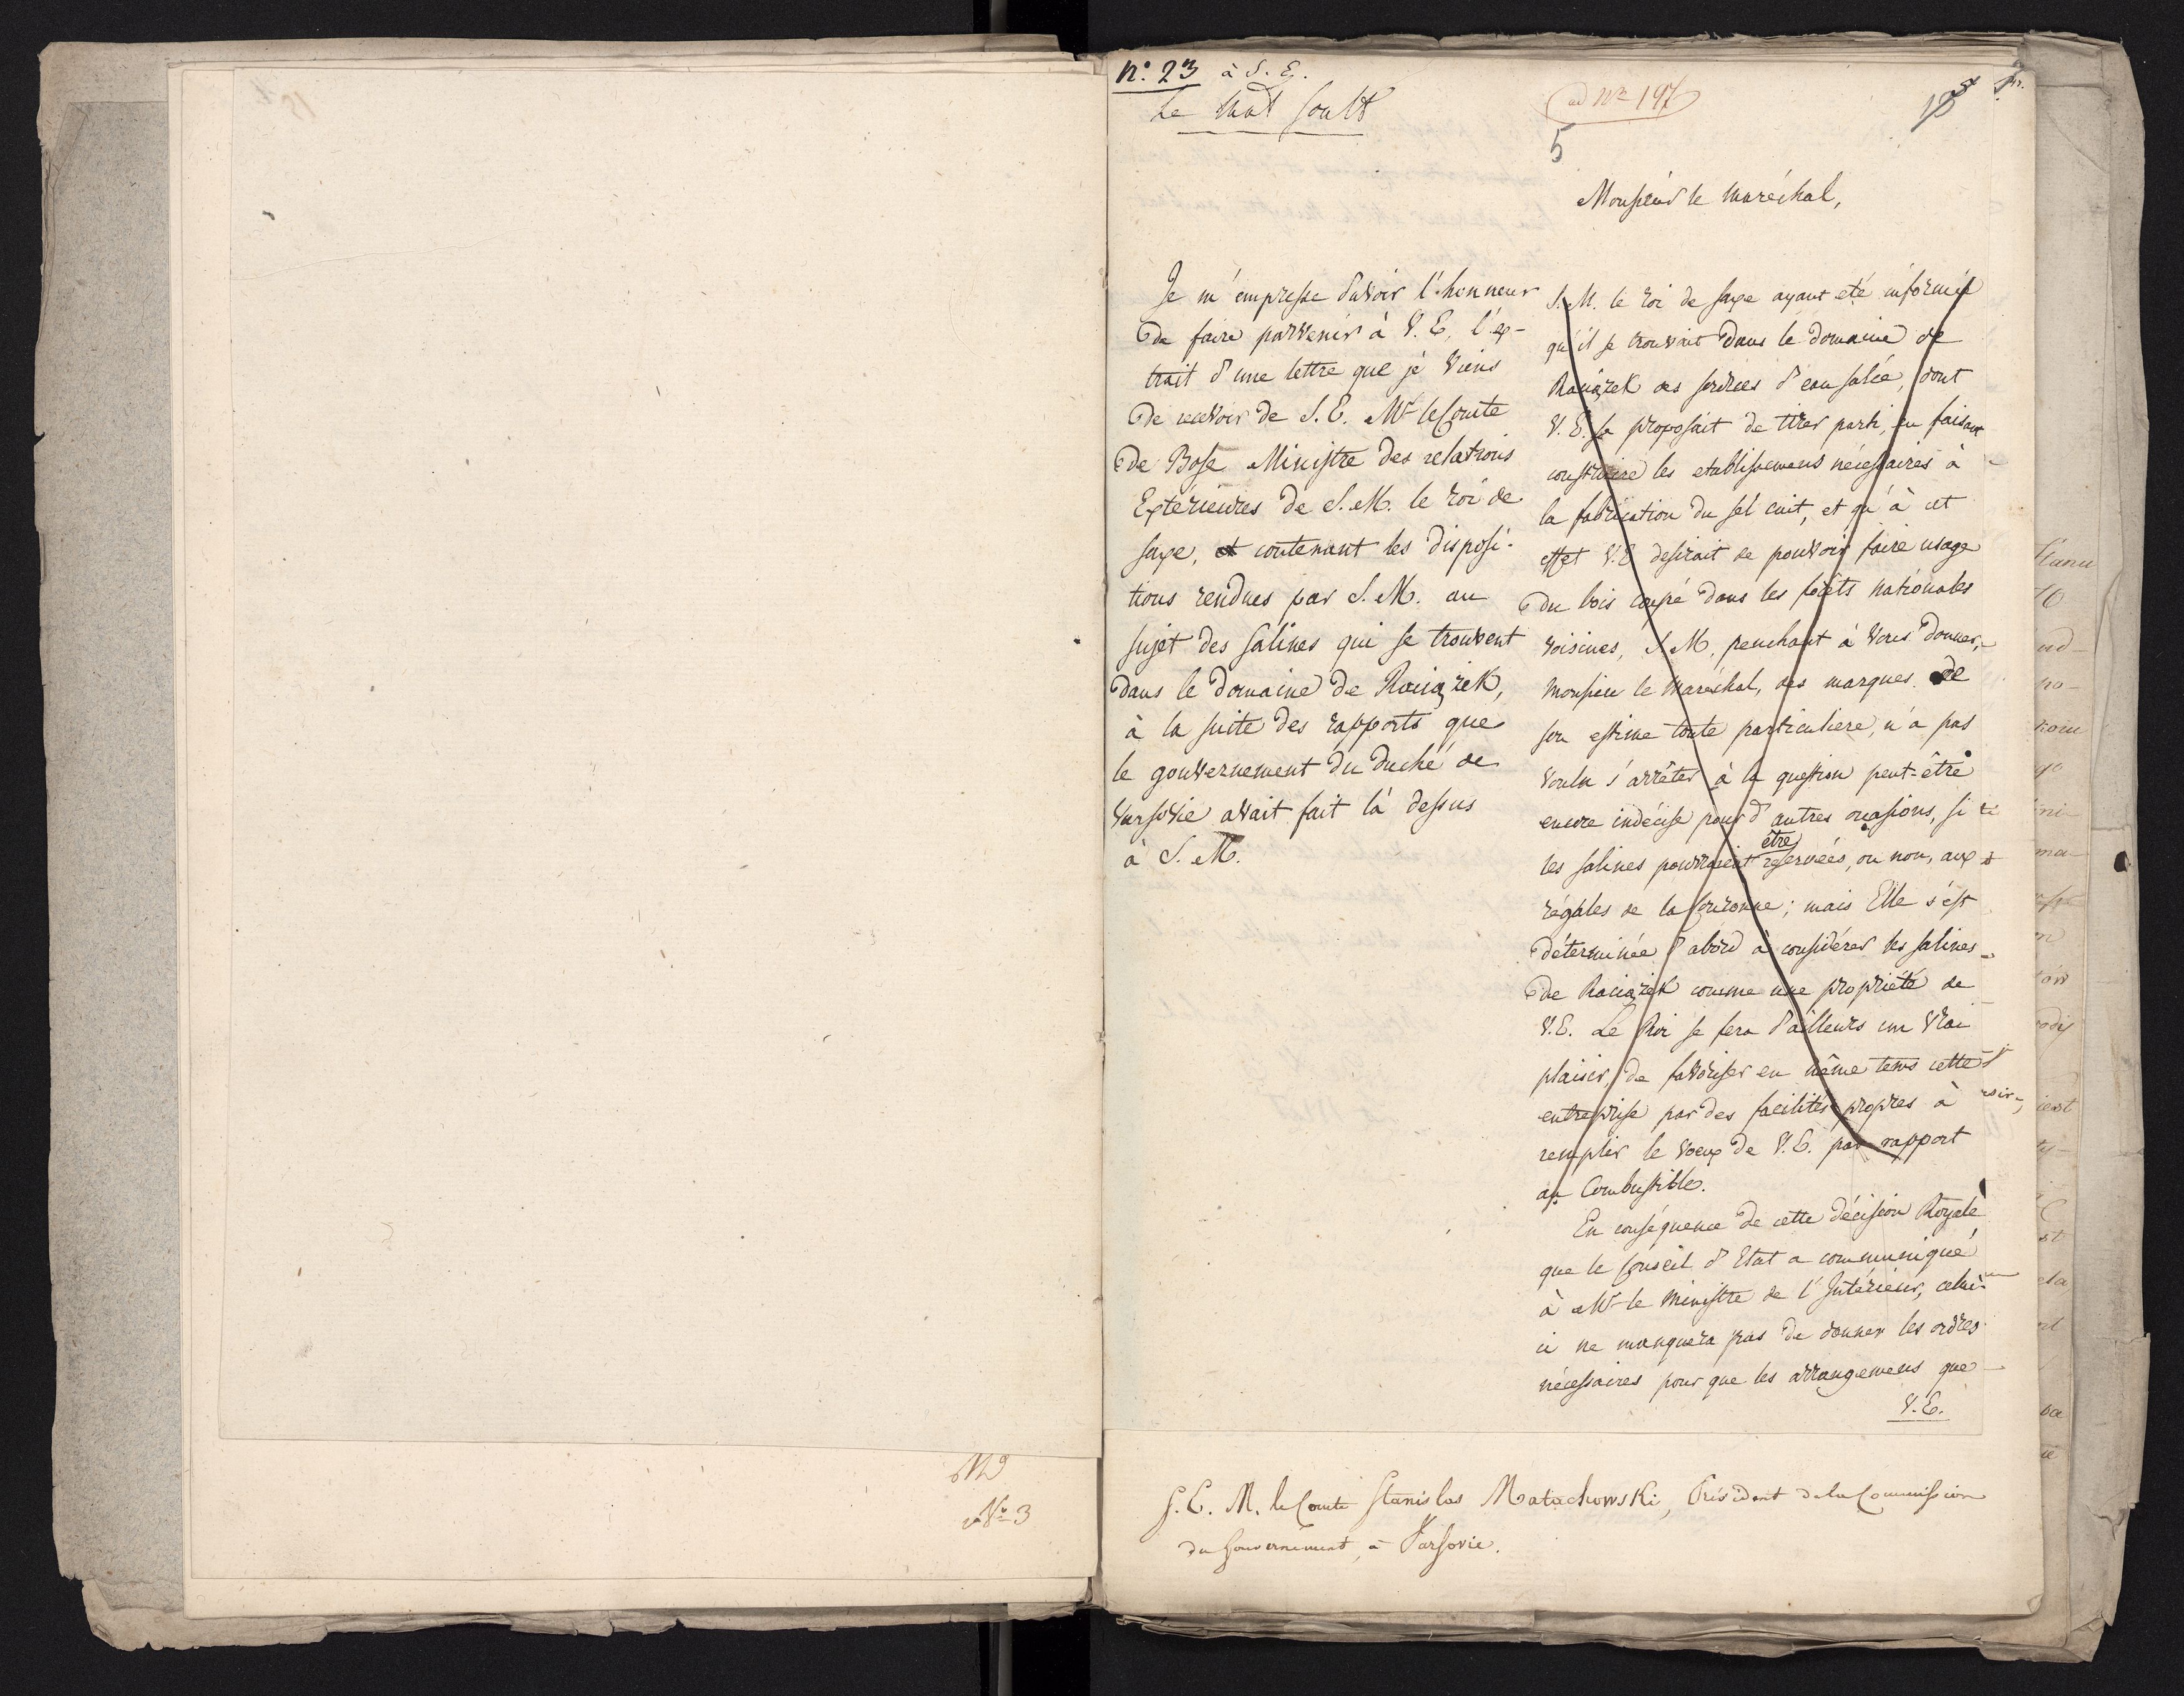 Nº. 23 à S. E.
Le Mal Soult
ad Nr 197
5
Monsieur le Maréchal,
Je m'empresse d'avoir l'honneur
de faire parvenir à V. E, l'ex-
trait d'une lettre que je viens
de recevoir de S. E. Mr le Comte
de Bose Ministre des relations
Extérieures de S. M. le roi de
Saxe, et contenant les disposi-
tions rendues par S. M. au
sujet des Salines qui se trouvent
dans le domaine de Raciążek,
à la suite des rapports que
le gouvernement du duché de
Varsovie avait fait là dessus
à S. M.
S. M. le roi de Saxe ayant été informé
qu'il se trouvait dans le domaine de
Raciążek des sources d'eau salée, dont
V. E. se proposait de tirer parti, en faisant
construire les etablissemens nécessaires à
la fabrication du sel cuit, et qu'à cet
effet V. E desirait de pouvoir faire usage
du bois coupé dans les forêts nationales
voisines, S. M, penchant à Vous donner,
Monsieur le Maréchal, des marques de
son estime toute particuliere, n'a pas
voulu s'arrêter à la question peut-être
encore indécise pour d'autres ocasions, si
être
les salines pourraient reservées, ou non, aux
régales de la Couronne; mais Elle s'est
déterminée d'abord à considérer les salines
de Raciążek comme une propriété de
V. E. Le Roi se fera d'ailleurs un vrai
plaisir, de favoriser en même tems cette
entreprise par des facilités propres à
remplir le voeux de V. E. par rapport
au Combustible.
En conséquence de cette décision Royale
que le Conseil d'Etat a communiqué
à Mr le Ministre de l'Intérieur, celui-
ci ne manquera pas de donner les ordres
nécessaires pour que les arrangemens que
V. E.
Nº 3
S. E. M. le Comte Stanislas Małachowski, Président de la Commission
du Gouvernement, à Varsovie.